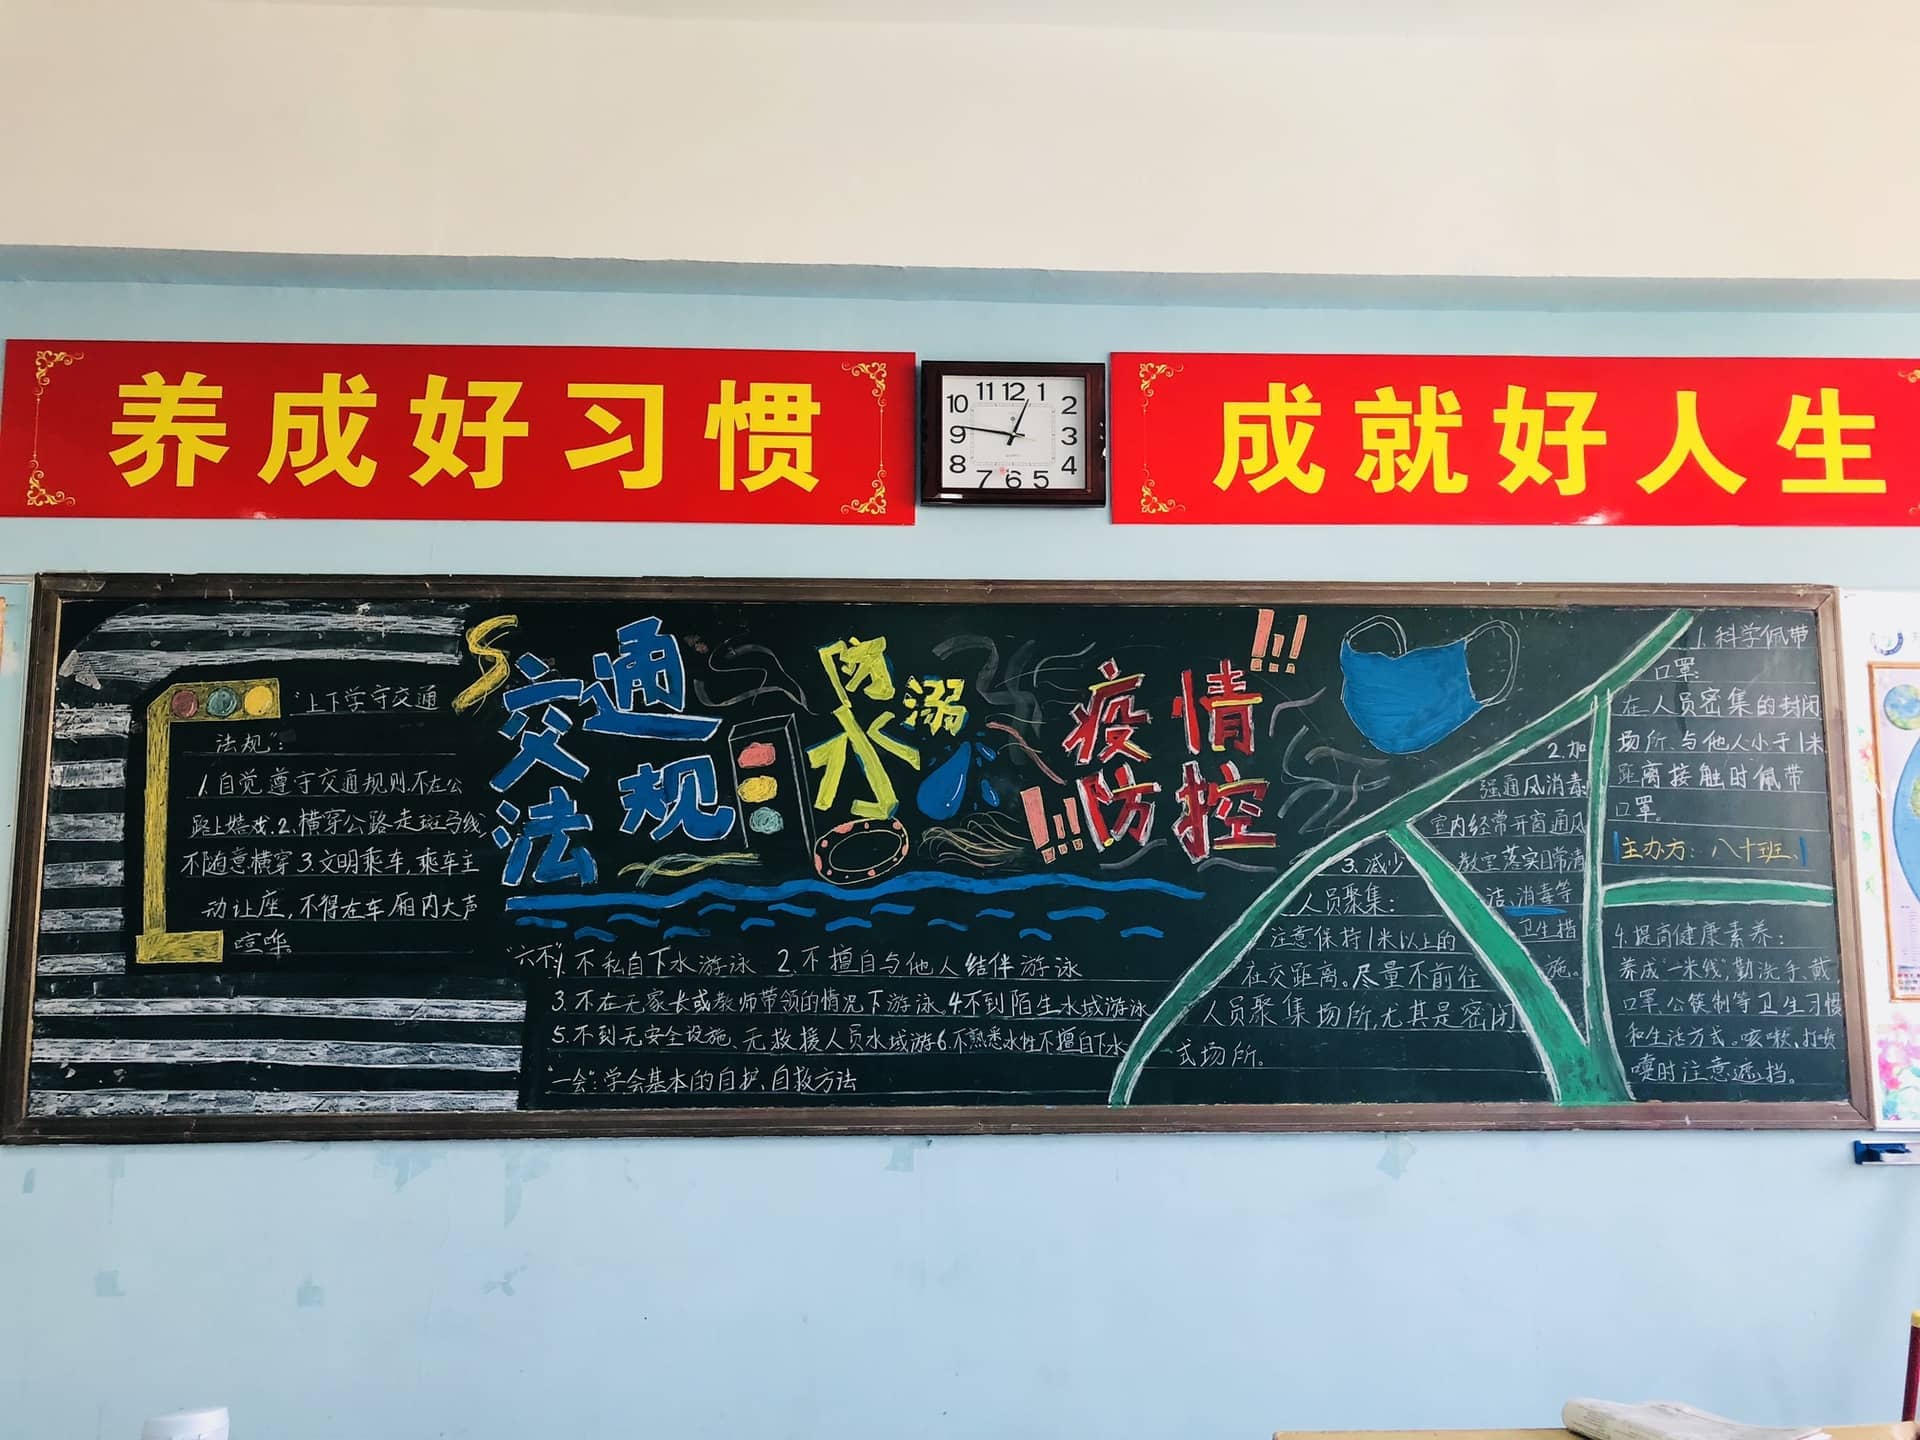 养成好习惯
成就好人生
11 12 1
10 2
9 3
8 4
7 6 5
交通
法规
防溺
水
!!!
疫情
!!!防控
"上下学守交通
法规":
1.自觉遵守交通规则.不在公
路上嬉戏.2.横穿公路走斑马线,
不随意横穿3.文明乘车,乘车主
动让座,不得在车厢内大声
喧哗.
"六不"1.不私自下水游泳 2.不擅自与他人结伴游泳
3.不在无家长或教师带领的情况下游泳.4.不到陌生水域游泳
5.不到无安全设施、无救援人员水域游6.不熟悉水性不擅自下水
"一会":学会基本的自护、自救方法
1.科学佩带
口罩:
在人员密集的封闭
场所、与他人小于1米
距离接触时佩带
口罩。
主办方:八十班、
2.加
强通风消毒:
室内经常开窗通风
教室落实日常清
洁、消毒等
卫生措
施。
3.减少
人员聚集:
注意保持1米以上的
社交距离。尽量不前往
人员聚集场所,尤其是密闭
式场所。
4.提高健康素养:
养成"一米线",勤洗手、戴
口罩、公筷制等卫生习惯
和生活方式。咳嗽、打喷
嚏时注意遮挡。